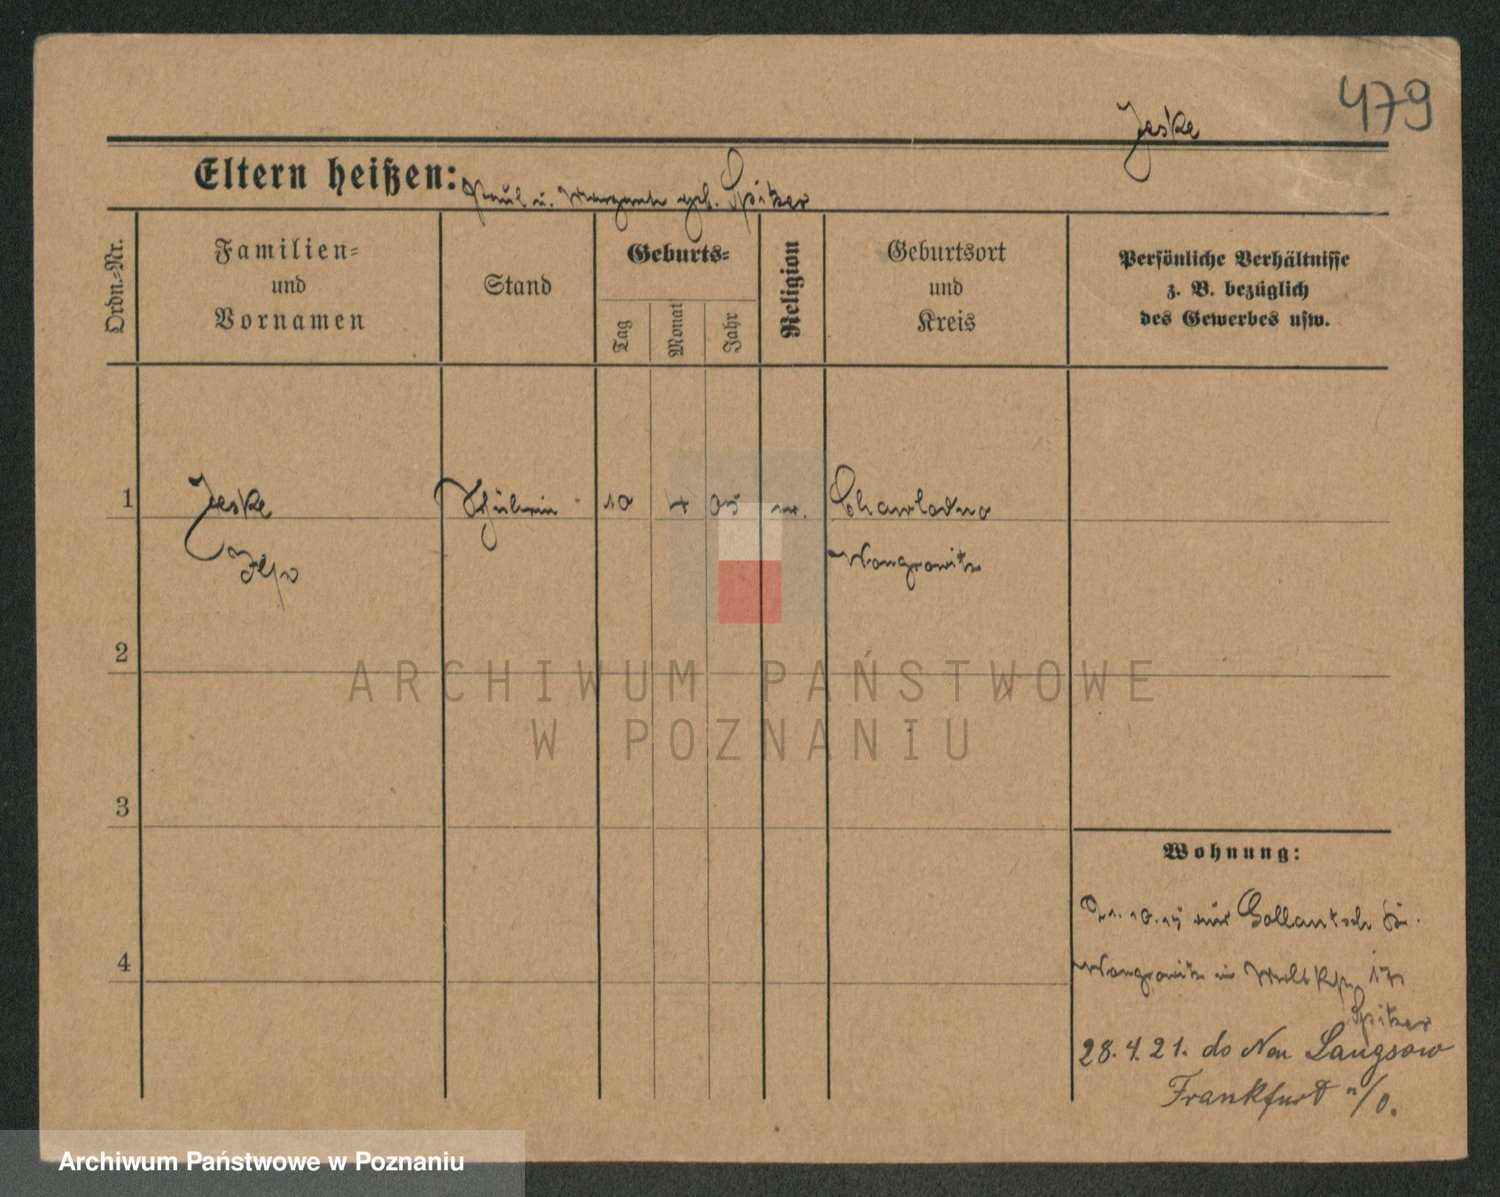 479
Jeske
Eltern heißen: Paul u. Margarete geb. Spitzer
Ordn.=Nr.
Familien=
und
Vornamen
Stand
Geburts=
Tag
Monat
Jahr
Religion
Geburtsort
und
Kreis
Persönliche Verhältnisse
z. B. bezüglich
des Gewerbes usw.
1
Jeske
Schülerin
10
4
05
Wongrowitz
2
3
4
Wohnung:
10.15 aus Gollantsch
Wongrowitz in 17
Spitzer
28.4.21. do Neu Langsow
Frankfurt a/O.
ARCHIWUM PAŃSTWOWE
W POZNANIU
Archiwum Państwowe w Poznaniu